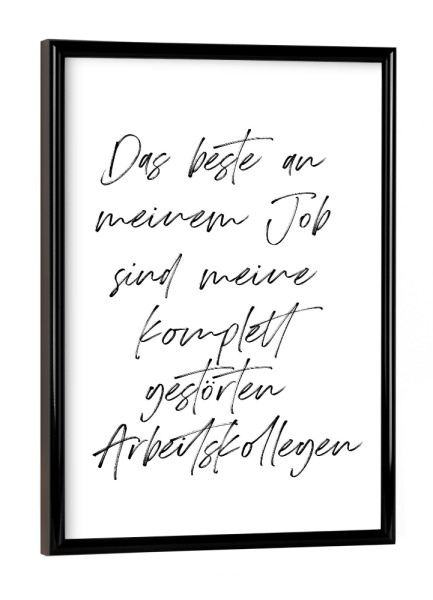 Das beste an
meinem Job
sind meine
komplett
gestörten
Arbeitskollegen